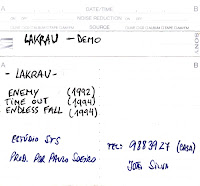 A DATE/TIME B
NOISE REDUCTION
SOURCE
LAKRAU - DEMO
SONY
A B
- LAKRAU -
ENEMY (1992)
TIME OUT (1994)
ENDLESS FALL (1994)
ESTÚDIO STS
PROD. POR PAULO SOEIRO
TEL: 9883927 (CASA)
JOÃO SILVA